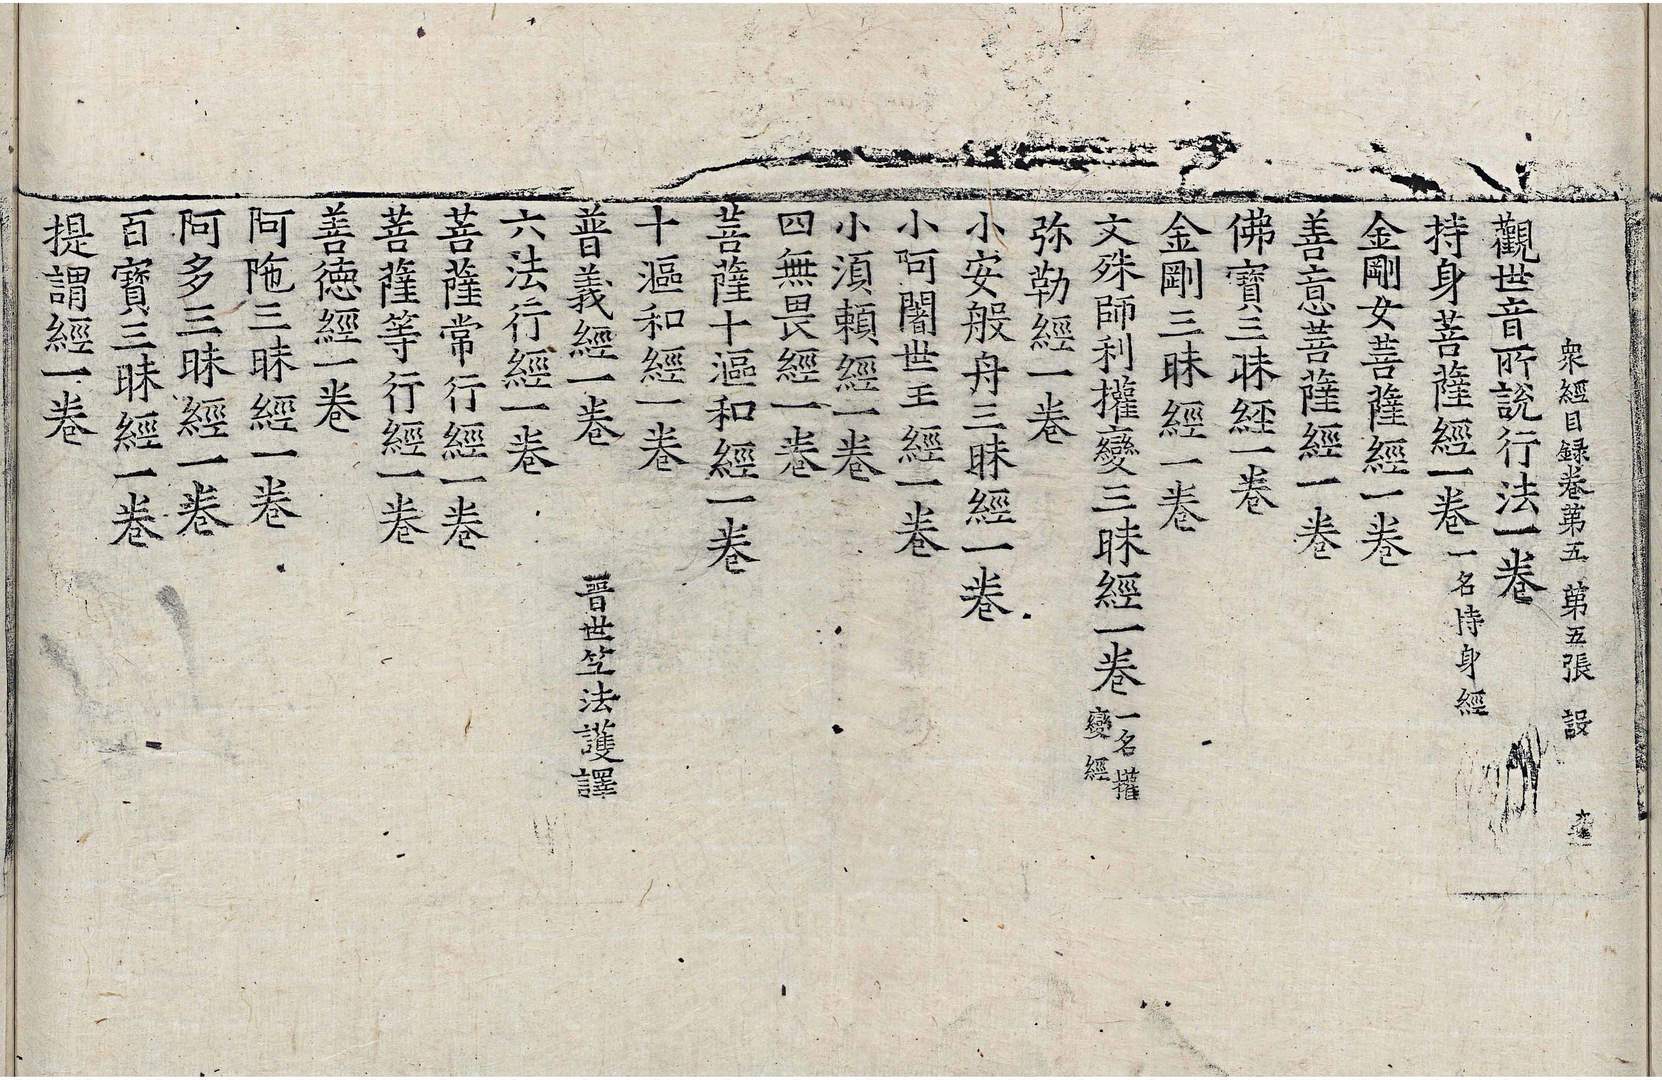 衆經目録卷第五 第五張 設
觀世音所說行法一卷
持身菩薩經一卷 一名持身經
金剛女菩薩經一卷
善意菩薩經一卷
佛寶三昧經一卷
金剛三昧經一卷
文殊師利權變三昧經一卷 一名權變經
弥勒經一卷
小安般舟三昧經一卷
小阿闍世王經一卷
小湏頼經一卷
四無畏經一卷
菩薩十漚和經一卷
十漚和經一卷
普義經一卷 晉世竺法護譯
六法行經一卷
菩薩常行經一卷
菩薩等行經一卷
善徳經一卷
阿陁三昧經一卷
阿多三昧經一卷
百寶三昧經一卷
提謂經一卷